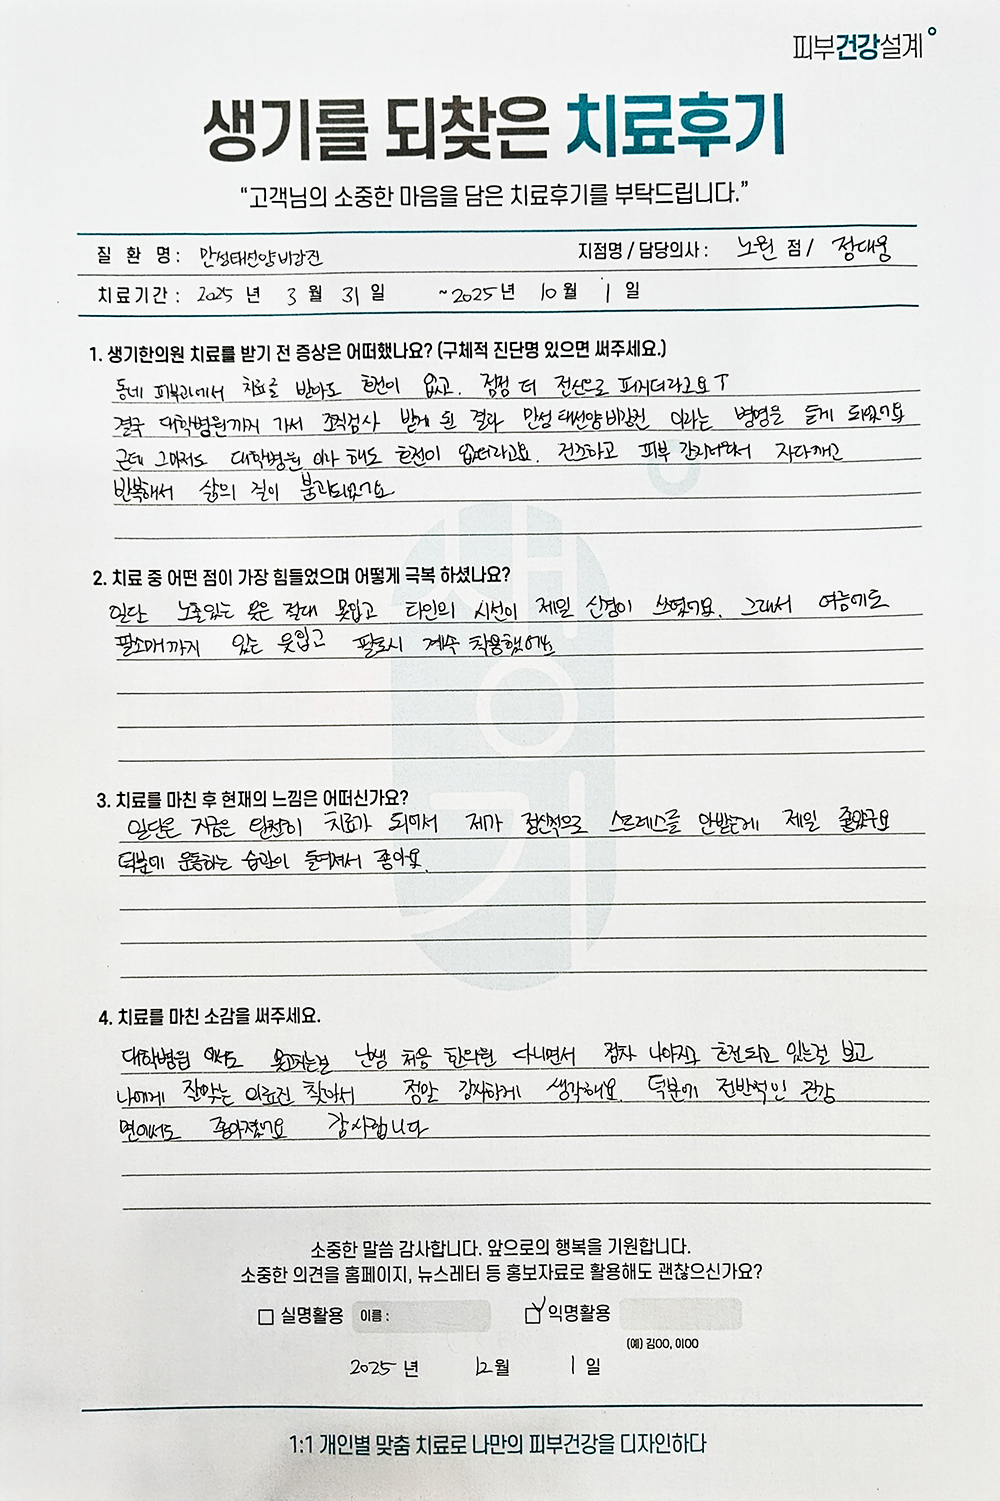 피부건강설계
생기를 되찾은 치료후기
“고객님의 소중한 마음을 담은 치료후기를 부탁드립니다.”
질 환 명 : 만성태선양비강진 지점명 / 담당의사 : 노원 점 / 정대웅
치료기간 : 2025 년 3 월 31 일 ~ 2025 년 10 월 1 일
1. 생기한의원 치료를 받기 전 증상은 어떠했나요? (구체적 진단명 있으면 써주세요.)
동네 피부과에서 치료를 받아도 호전이 없고. 점점 더 전신으로 퍼지더라고요
결국 대학병원까지 가서 조직검사 받게 된 결과 만성태선양비강진 이라는 병명을 듣게 되었어요
근데 그마저도 대학병원 이라 해도 호전이 없더라고요. 건조하고 피부 간지러워서 자다깨고
반복해서 삶의 질이 불과되었어요
2. 치료 중 어떤 점이 가장 힘들었으며 어떻게 극복 하셨나요?
일단 노출있는 옷은 절대 못입고 타인의 시선이 제일 신경이 쓰였어요. 그래서 여름에도
팔소매까지 있는 옷입고 팔토시 계속 착용했어요
3. 치료를 마친 후 현재의 느낌은 어떠신가요?
일단은 지금은 완전히 치료가 되어서 제가 정신적으로 스트레스를 안받는게 제일 좋았구요
덕분에 운동하는 습관이 들여져서 좋아요.
4. 치료를 마친 소감을 써주세요.
대학병원 에서도 못고치는걸 난생 처음 한의원 다니면서 점차 나아지고 호전되고 있는걸 보고
나에게 잘맞는 의료진 찾아서 정말 감사하게 생각해요. 덕분에 전반적인 건강
면에서도 좋아졌어요 감사합니다
소중한 말씀 감사합니다. 앞으로의 행복을 기원합니다.
소중한 의견을 홈페이지, 뉴스레터 등 홍보자료로 활용해도 괜찮으신가요?
실명활용 이름 : 익명활용
(예) 김OO, 이OO
2025 년 12 월 1 일
1:1 개인별 맞춤 치료로 나만의 피부건강을 디자인하다
생기